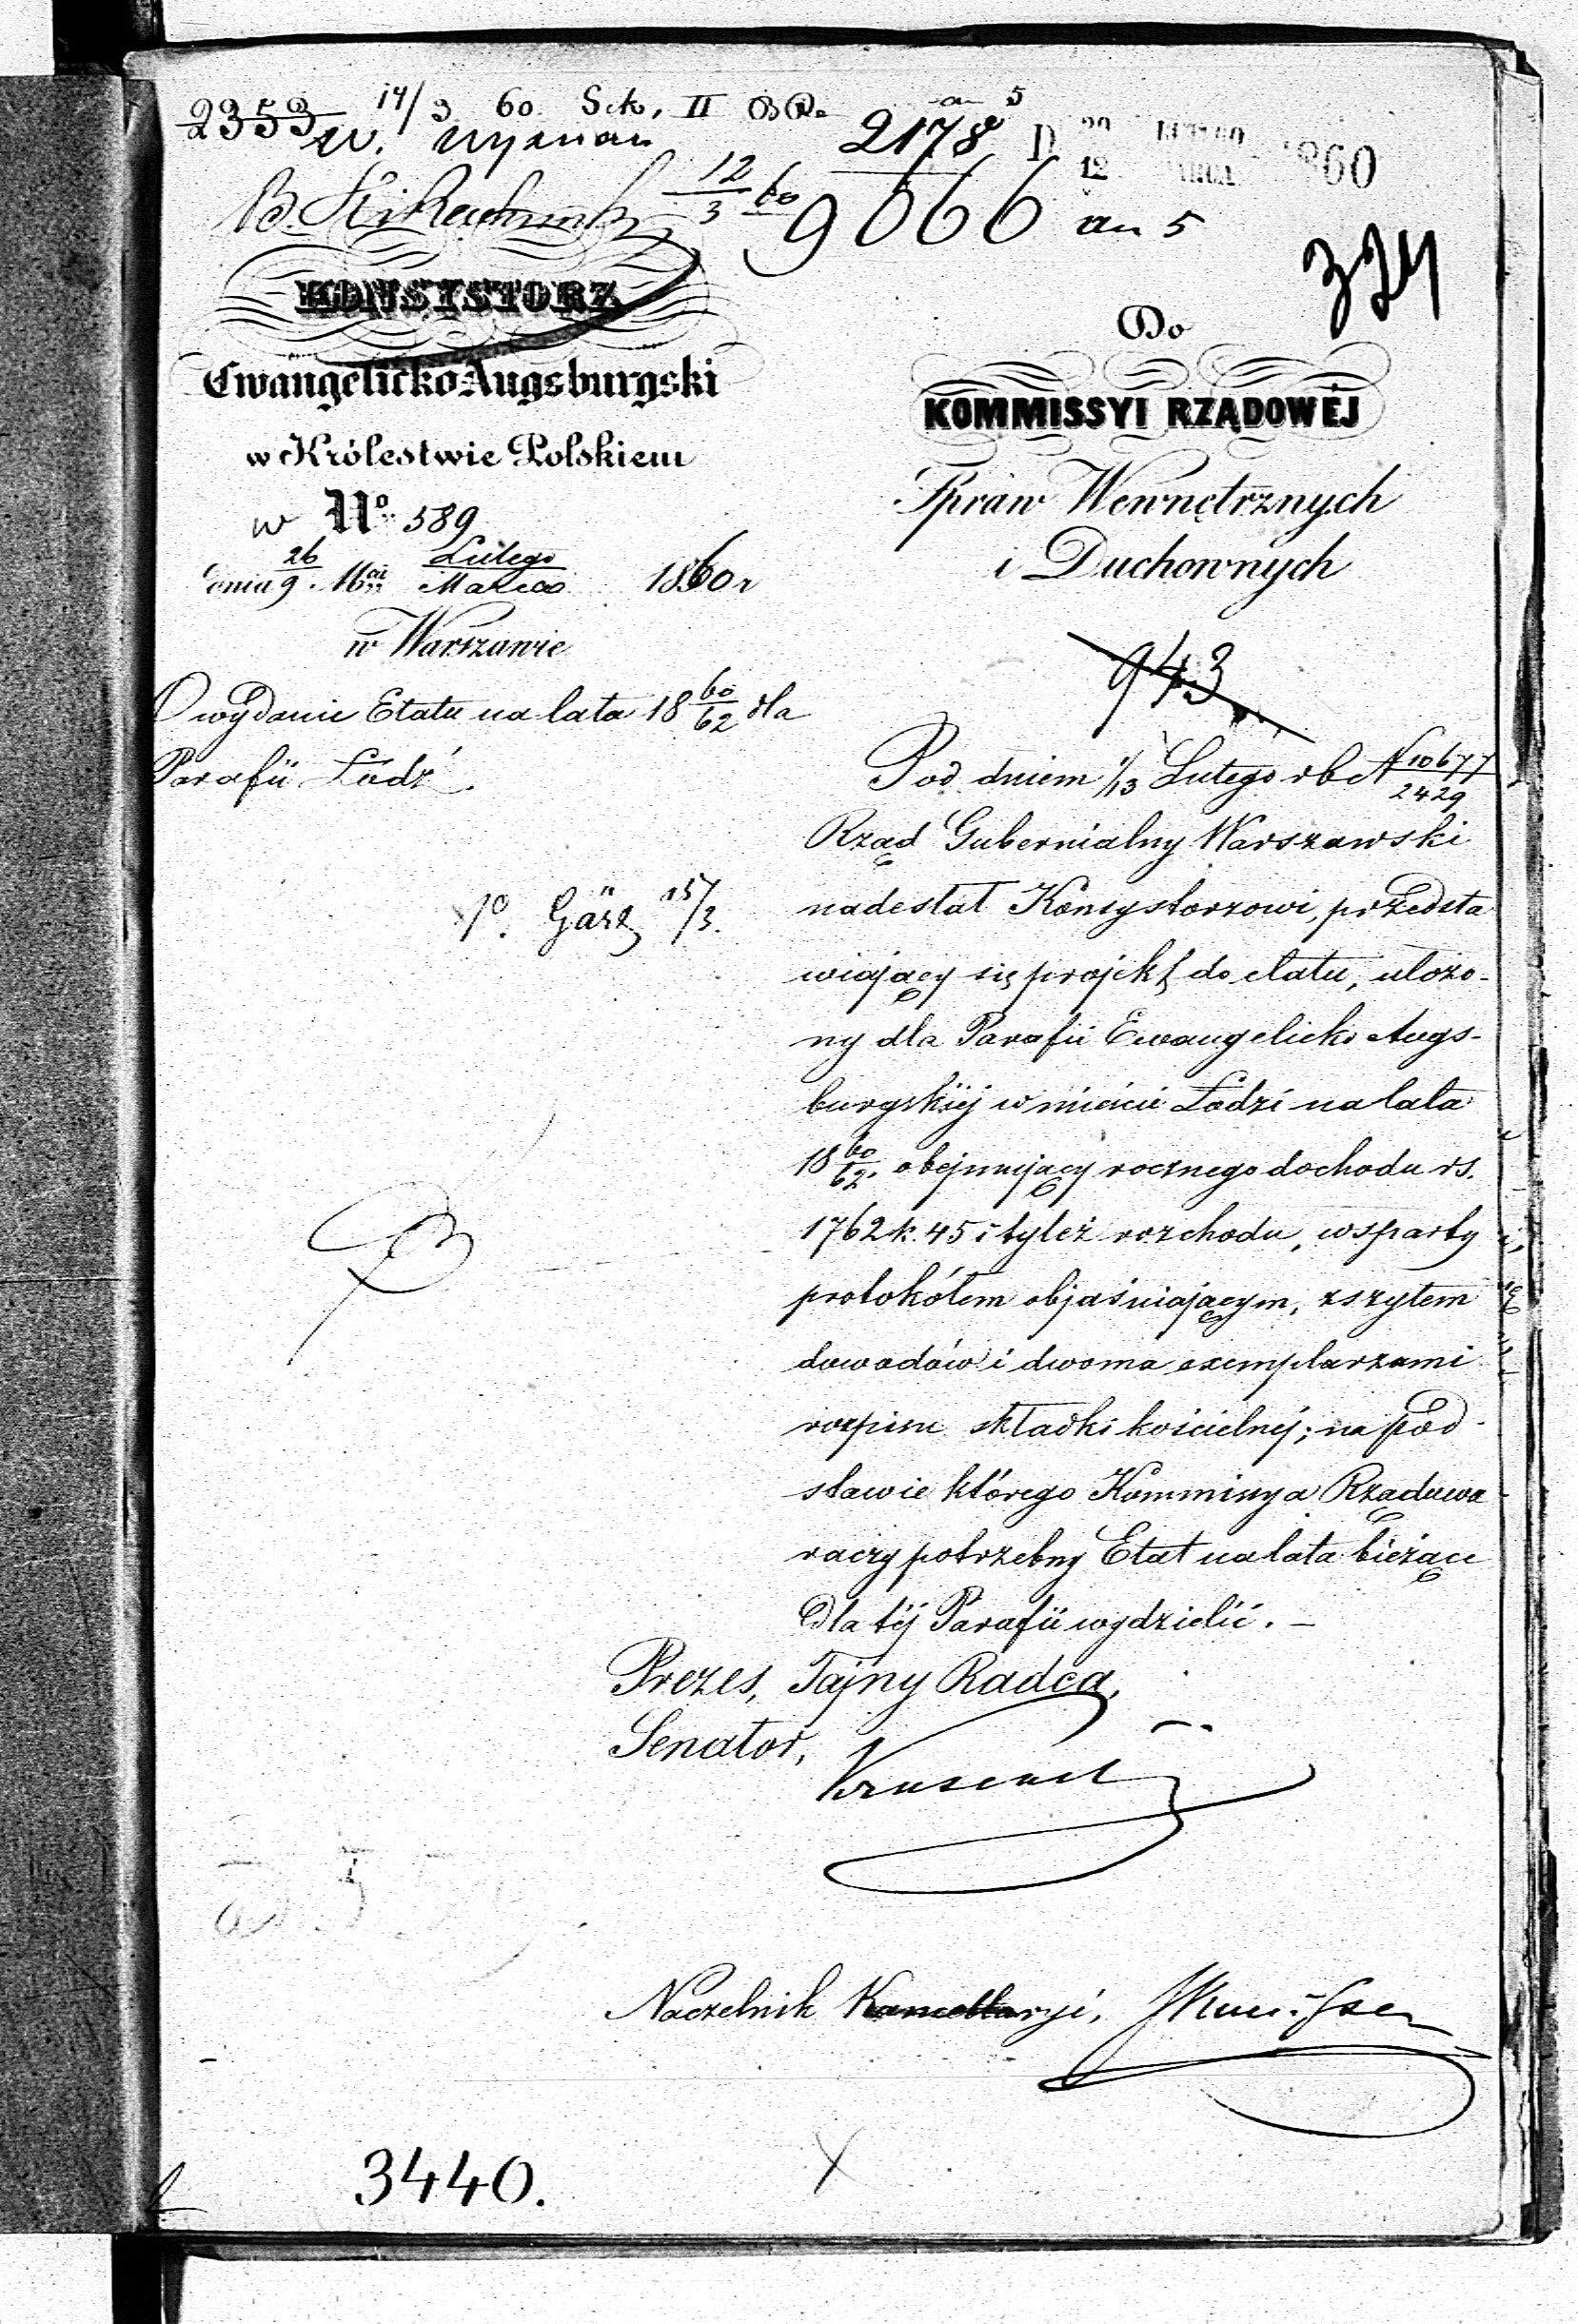 2353 14/3 60. Sek. II
2178 an 5
12/3 60 9066 an 5
1860
374
KONSYSTORZ
Ewangelicko-Augsburgski
w Królestwie Polskiem
w No 589
dnia 26/9 Mca Lutego/Marca 1860 r
w Warszawie
O wydanie Etatu na lata 18 60/62 dla
Parafii Łódź.
Gärz 15/3.
Do
KOMMISSYI RZĄDOWÉJ
Spraw Wewnętrznych
i Duchownych
943
Pod dniem 1/13 Lutego rb N 10677/2429
Rząd Gubernialny Warszawski
nadesłał Konsystorzowi, przedsta
wiający się projekt do etatu, ułożo-
ny dla Parafii Ewangelicko Augs-
burgskiéj w mieście Łodzi na lata
18 60/62. obejmujący rocznego dochodu rs.
1762 k. 45 i tyleż rozchodu, wsparty
protokółem objaśniającym, zszytem
dowodów i dwoma exemplarzami
rozpisu składki kościelnéj; na pod-
stawie którego Kommissya Rządowa
raczy potrzebny Etat na lata bieżące
dla téj Parafii wydzielić. —
Prezes, Tajny Radca,
Senator,
Krusenst
Naczelnik Kancellaryi,
3440.